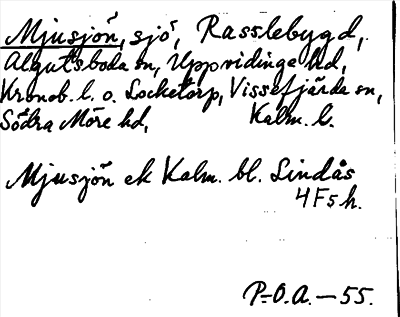 Mjusjön, sjö, Rasslebygd,
Algutsboda sn, Uppvidinge hd,
Kronob. l. o. Locketorp, Vissefjärda sn,
Södra Möre hd, Kalm. l.
Mjusjön ek Kalm. bl. Lindås
4F5h.
P-O.A.-55.